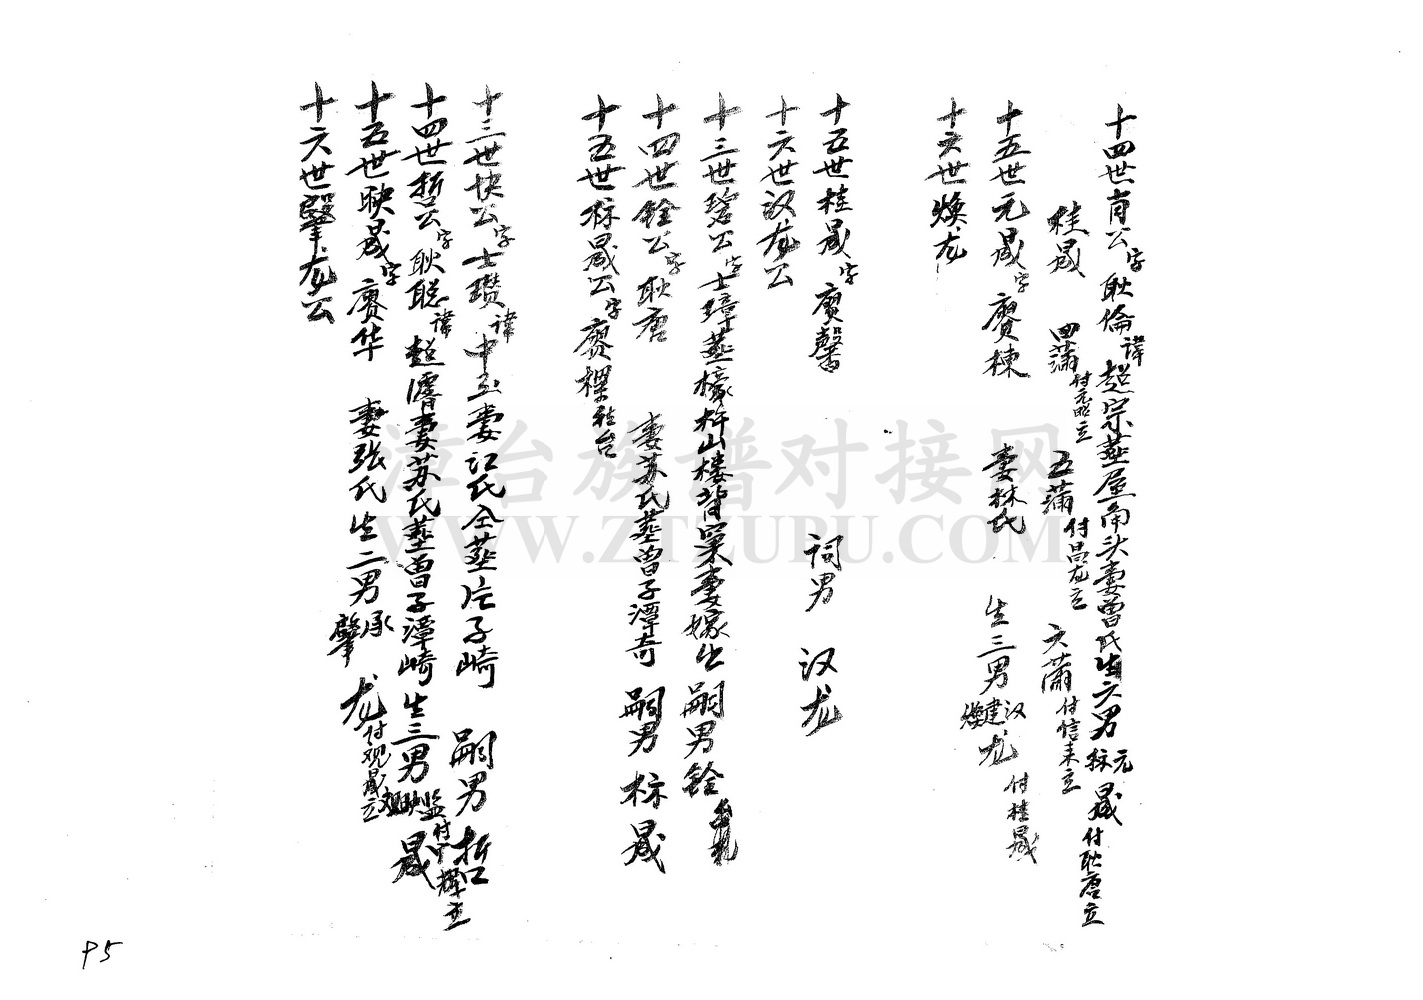 十四世育公字耿倫諱超宗葬屋角头妻曾氏生六男元标晟付耿唐立
桂晟 四蒲付元昭立 五蒲付昌龙立 六蒲付信来立
十五世元晟字賡棟 妻林氏 生三男汉建焕龙付桂晟
十六世焕龙
十五世桂晟字賡馨 祠男 汉龙
十六世汉龙公
十三世碧公字士璋葬樟杵山楼背窠妻嫁出嗣男銓
十四世銓公字耿唐 妻苏氏葬曾子潭奇 嗣男标晟
十五世标晟公字賡棵往台
十三世快公字士瓒諱中玉妻江氏仝葬庄子崎 嗣男哲
十四世哲公字耿聪諱超濬妻苏氏葬曾子潭崎生三男监映观晟付廣輝立
十五世映晟字賡华 妻张氏生二男承肇龙付观晟立
十六世肇龙公
漳台族谱对接网
WWW.ZTZUPU.COM
P5